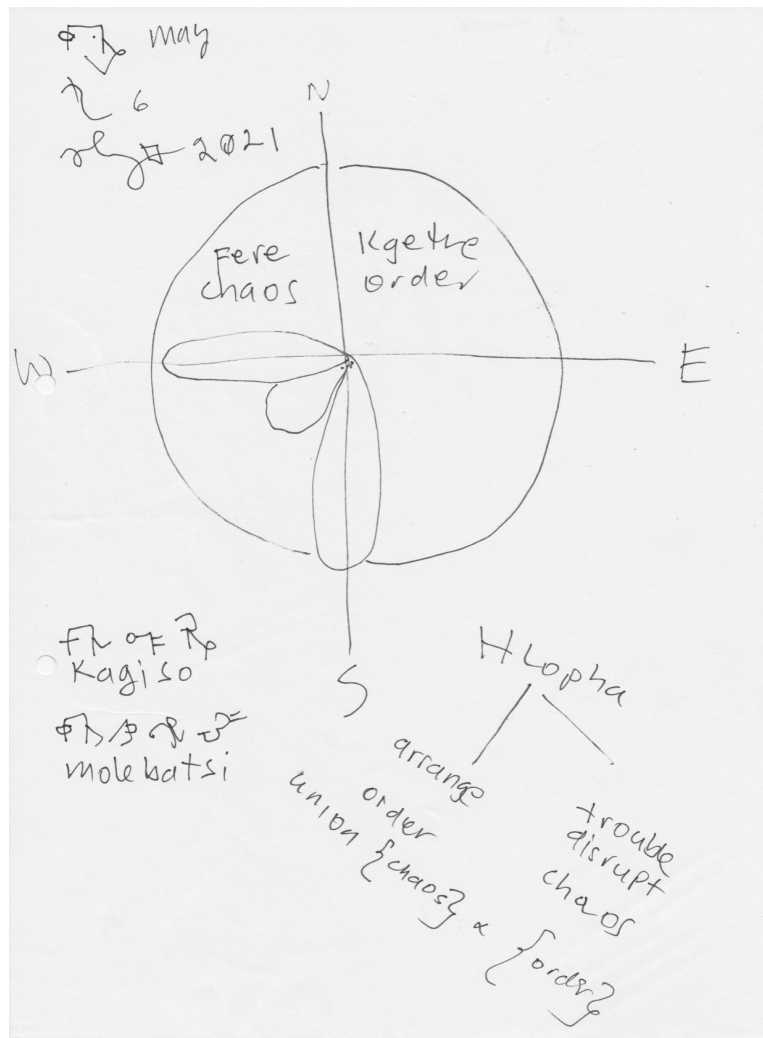 may
6
2021
N
Fere
chaos
Kgethe
order
W
E
S
Kagiso
molebatsi
HLopha
arrange
order
union {chaos} ∝ {order}
trouble
disrupt
chaos